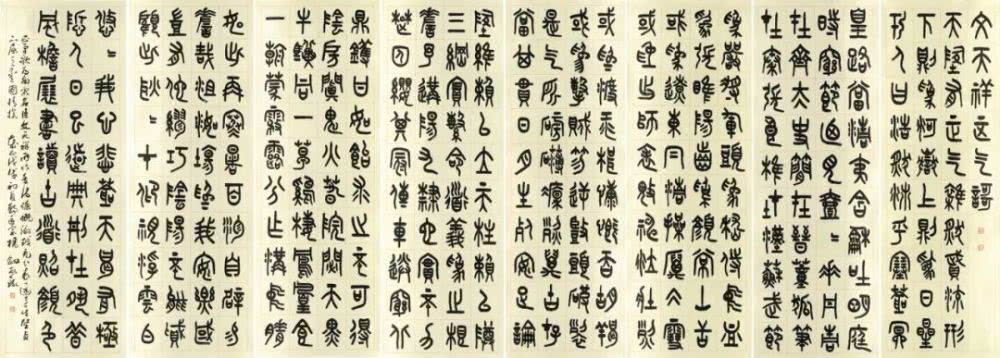 文天祥正气歌
天地有正气雜然賦流形
下則為河嶽上則為日星
於人曰浩然沛乎塞蒼冥
皇路當清夷含和吐明庭
時窮節乃見一一垂丹青
在齊太史簡在晉董狐筆
在秦張良椎在漢蘇武節
為嚴將軍頭為嵇侍中血
為張睢陽齒為顏常山舌
或為遼東帽清操厲冰雪
或為出師表鬼神泣壯烈
或為渡江楫慷慨吞胡羯
或為擊賊笏逆豎頭破裂
是气所磅礴凜烈萬古存
當其貫日月生死安足論
地維賴以立天柱賴以尊
三綱實繫命道義為之根
嗟予遘陽九隸也實不力
楚囚纓其冠傳車送窮北
鼎鑊甘如飴求之不可得
陰房闃鬼火春院閟天黑
牛驥同一皂雞棲鳳凰食
一朝蒙霧露分作溝中瘠
如此再寒暑百沴自辟易
嗟哉沮洳場為我安樂國
豈有他繆巧陰陽不能賊
顧此耿耿在仰視浮雲白
悠悠我心悲蒼天曷有極
哲人日已遠典刑在夙昔
風檐展書讀古道照顏色